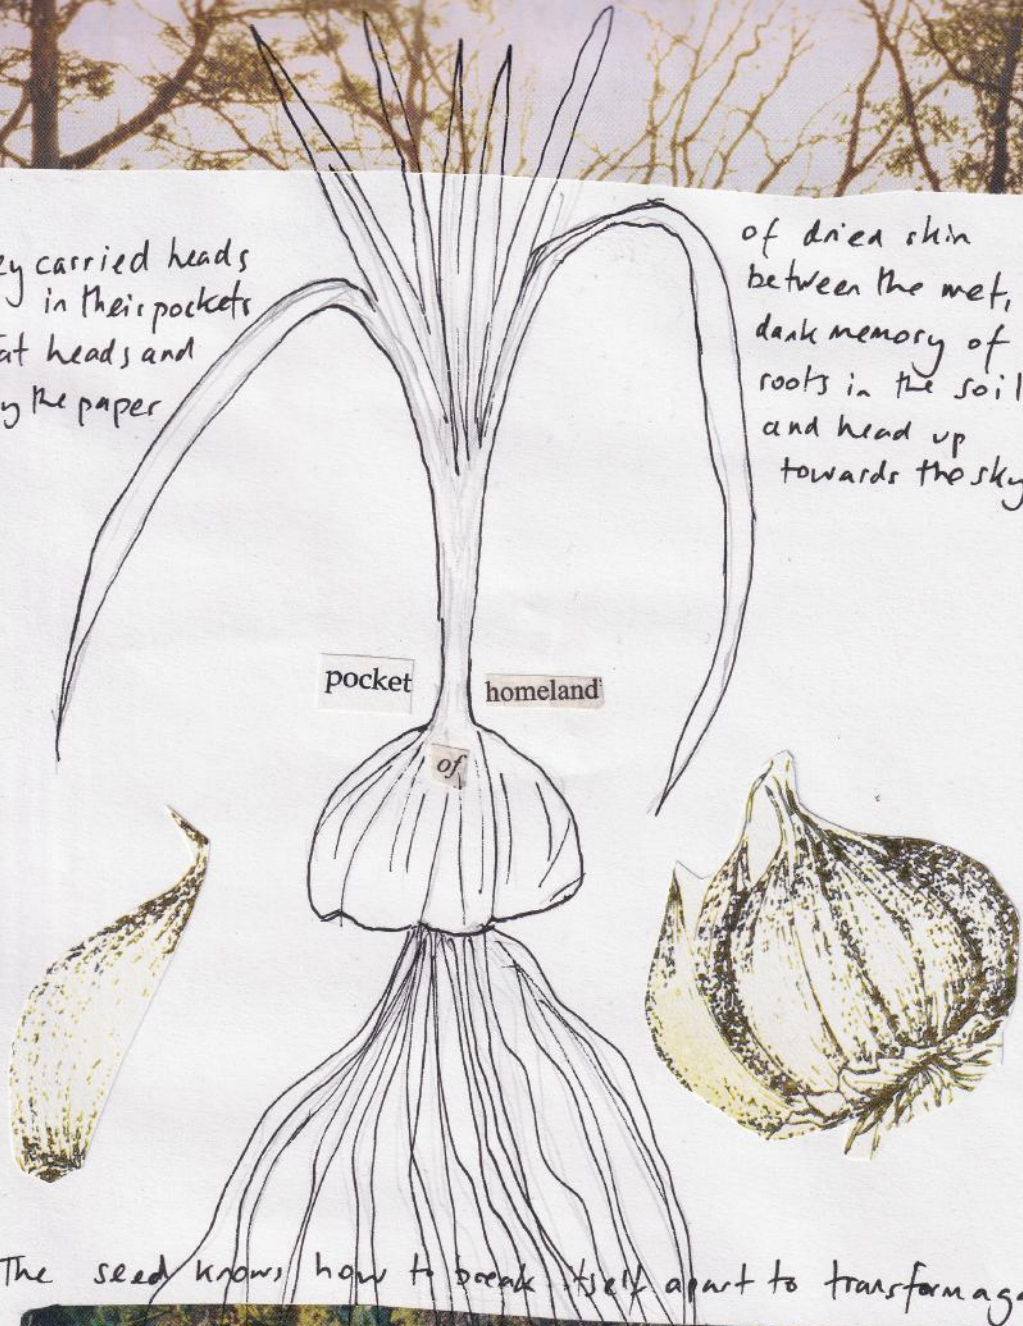 ey carried heads
in their pockets
at heads and
y the paper
of dried skin
between the wet,
dank memory of
roots in the soil
and head up
towards the sky
pocket
homeland
of
The seed knows how to break itself apart to transform aga